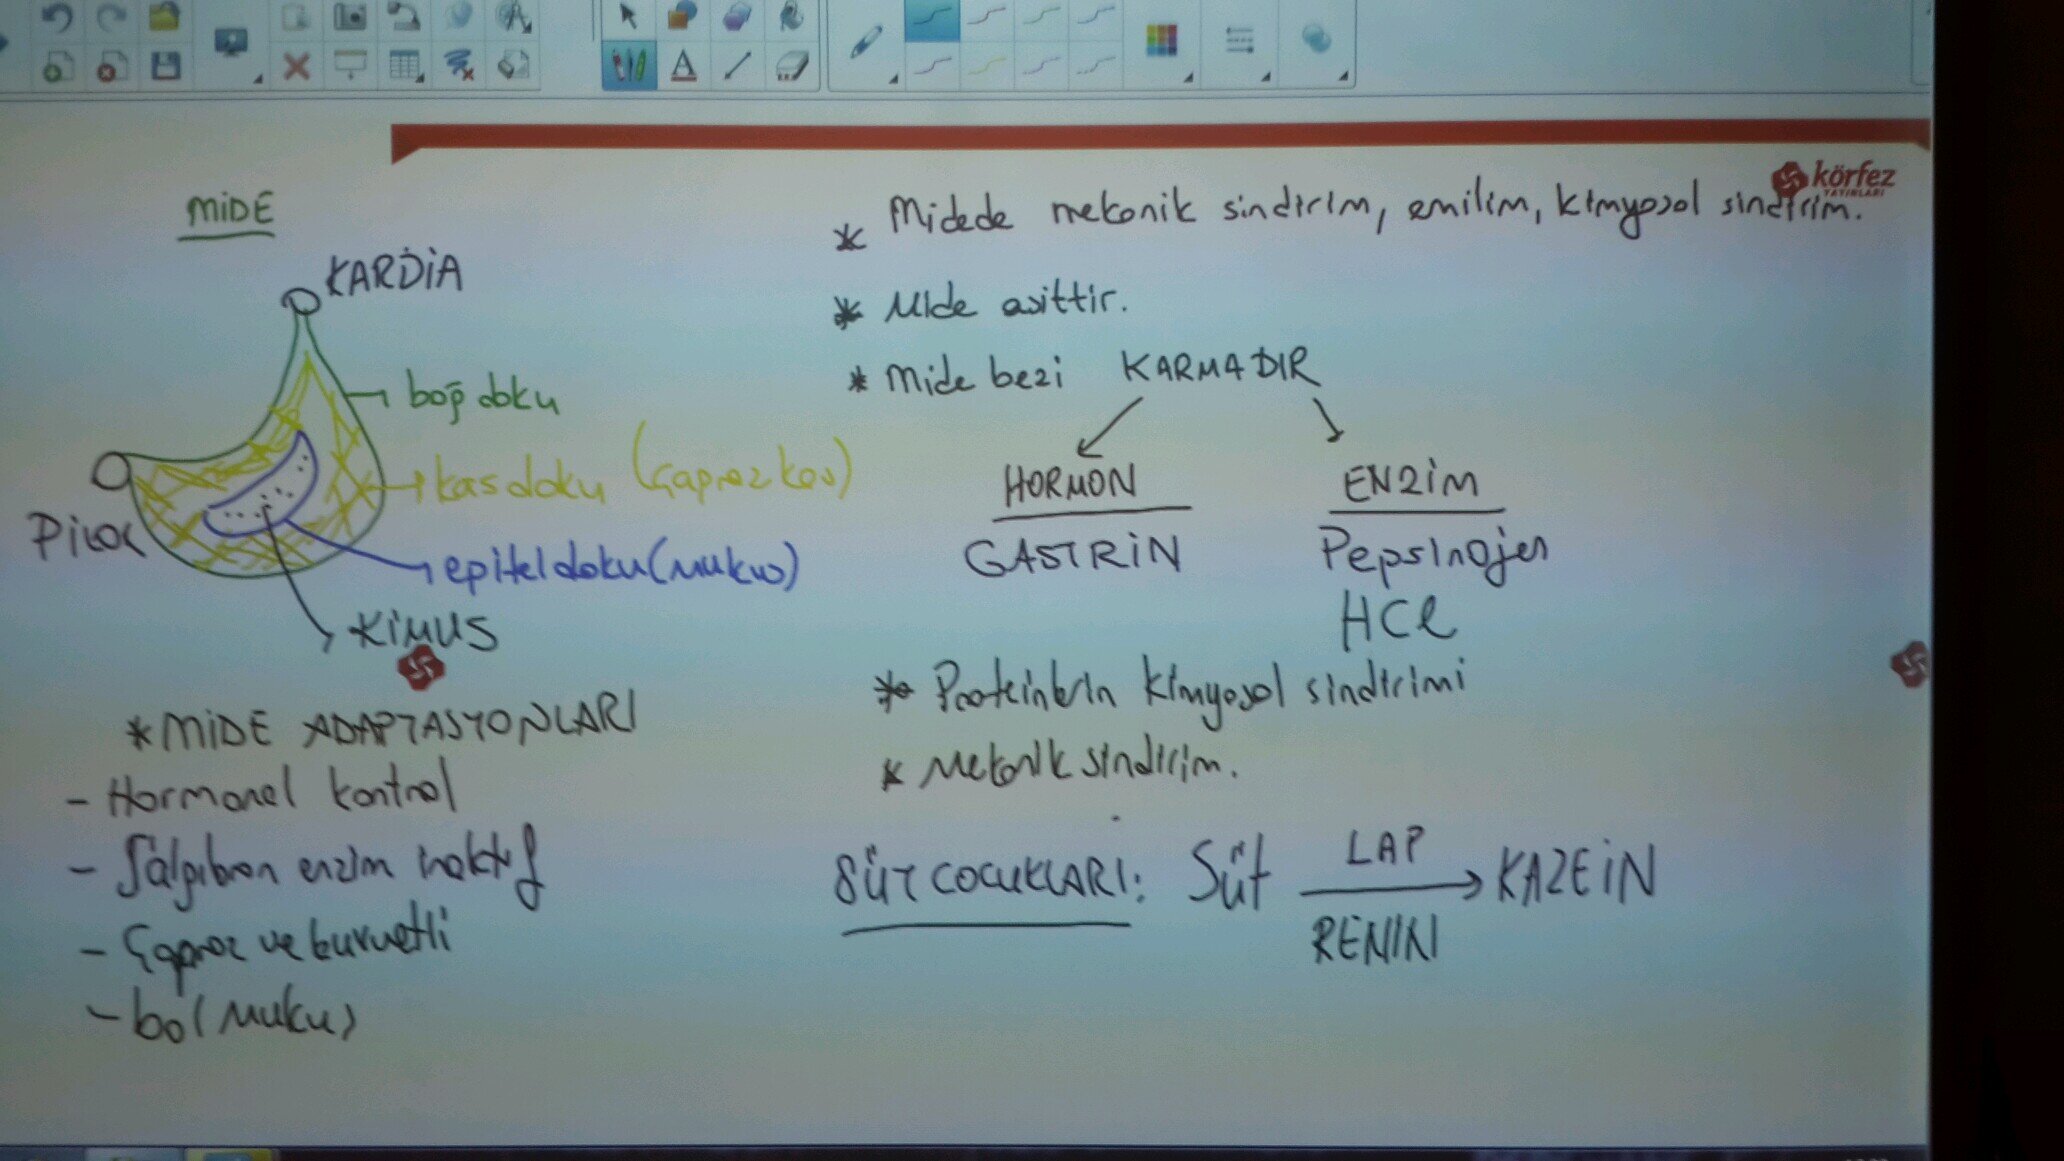 körfez
YAYINLARI
MİDE
KARDİA
bağ doku
kas doku (Çapraz kas)
Pilor
epitel doku (mukus)
KİMUS
*MİDE ADAPTASYONLARI
- Hormonel kontrol
- Salgılanan enzim inaktif
- Çapraz ve kuvvetli
- bol mukus
* Midede mekanik sindirim, emilim, kimyasal sindirim.
* Mide asittir.
* Mide bezi KARMADIR
HORMON ENZİM
GASTRİN Pepsinojen
HCl
* Proteinlerin kimyasal sindirimi
* Mekanik sindirim.
SÜT COCUKLARI: Süt LAP KAZEİN
RENİN